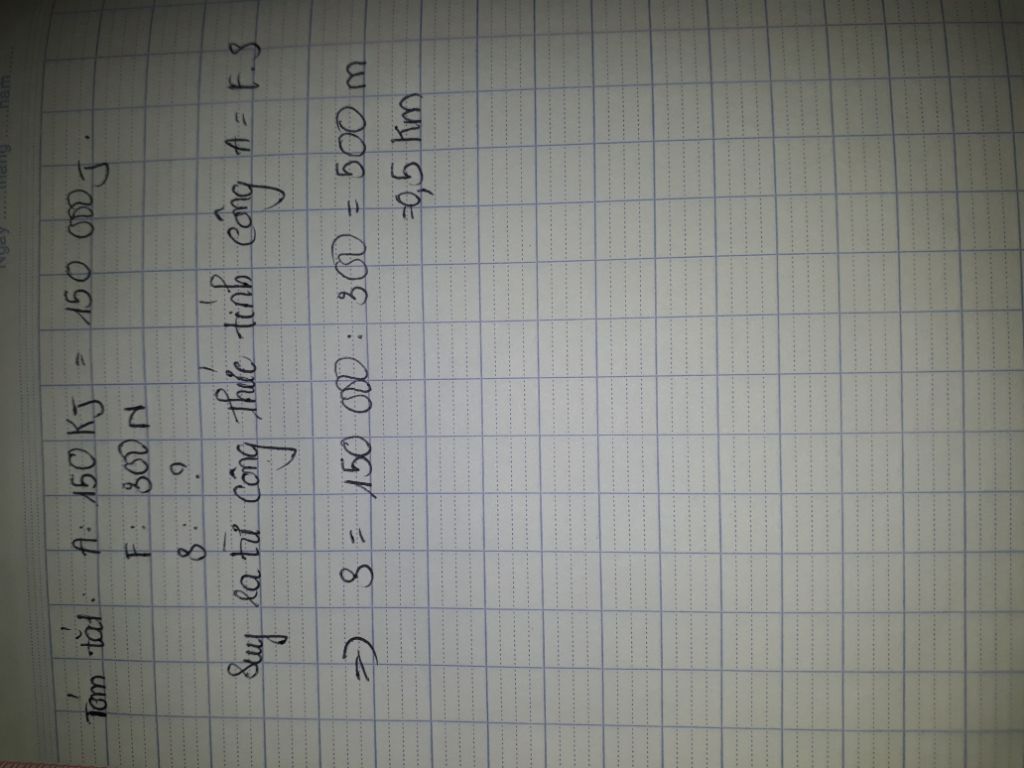 Ngày ......... tháng ......... năm .........
Tóm tắt: A: 150 KJ = 150 000 J.
F: 300 N
S: ?
Suy ra từ công thức tính công A = F.S
=) S = 150 000 : 300 = 5000 m
=0,5 Km